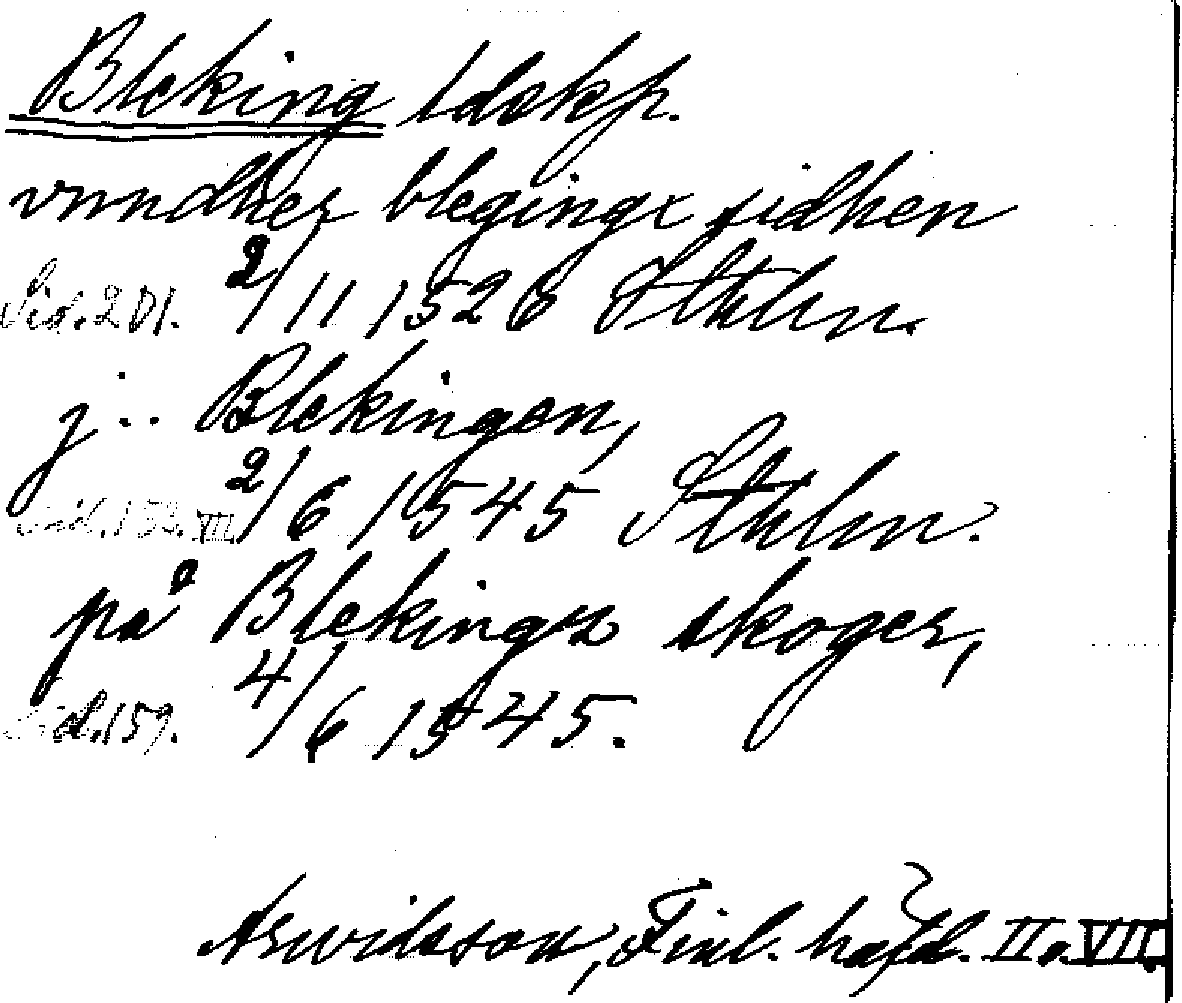 Bleking ldskp.
vnndher blegingx sidhen
Sid. 201. 2/11 1526 Sthlm.
j .. Blekingen,
Sid. 153. VII. 2/6 1545 Sthlm.
på Blekings skoger,
Sid. 159. 4/6 1545.
Arwidsson, Finl. häfd. II o. VII.